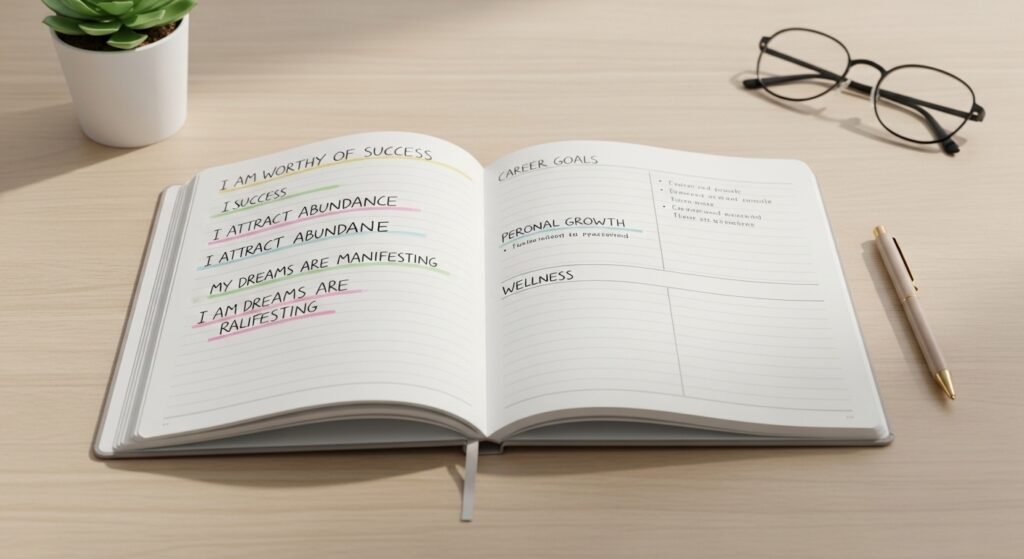 I AM WORTHY OF SUCCESS
I SUCCESS
I ATTRACT ABUNDANCE
I ATTRACT ABUNDANE
MY DREAMS ARE MANIFESTING
I AM DREAMS ARE
RALIFESTING
CAREER GOALS
PERONAL GROWTH
WELLNESS